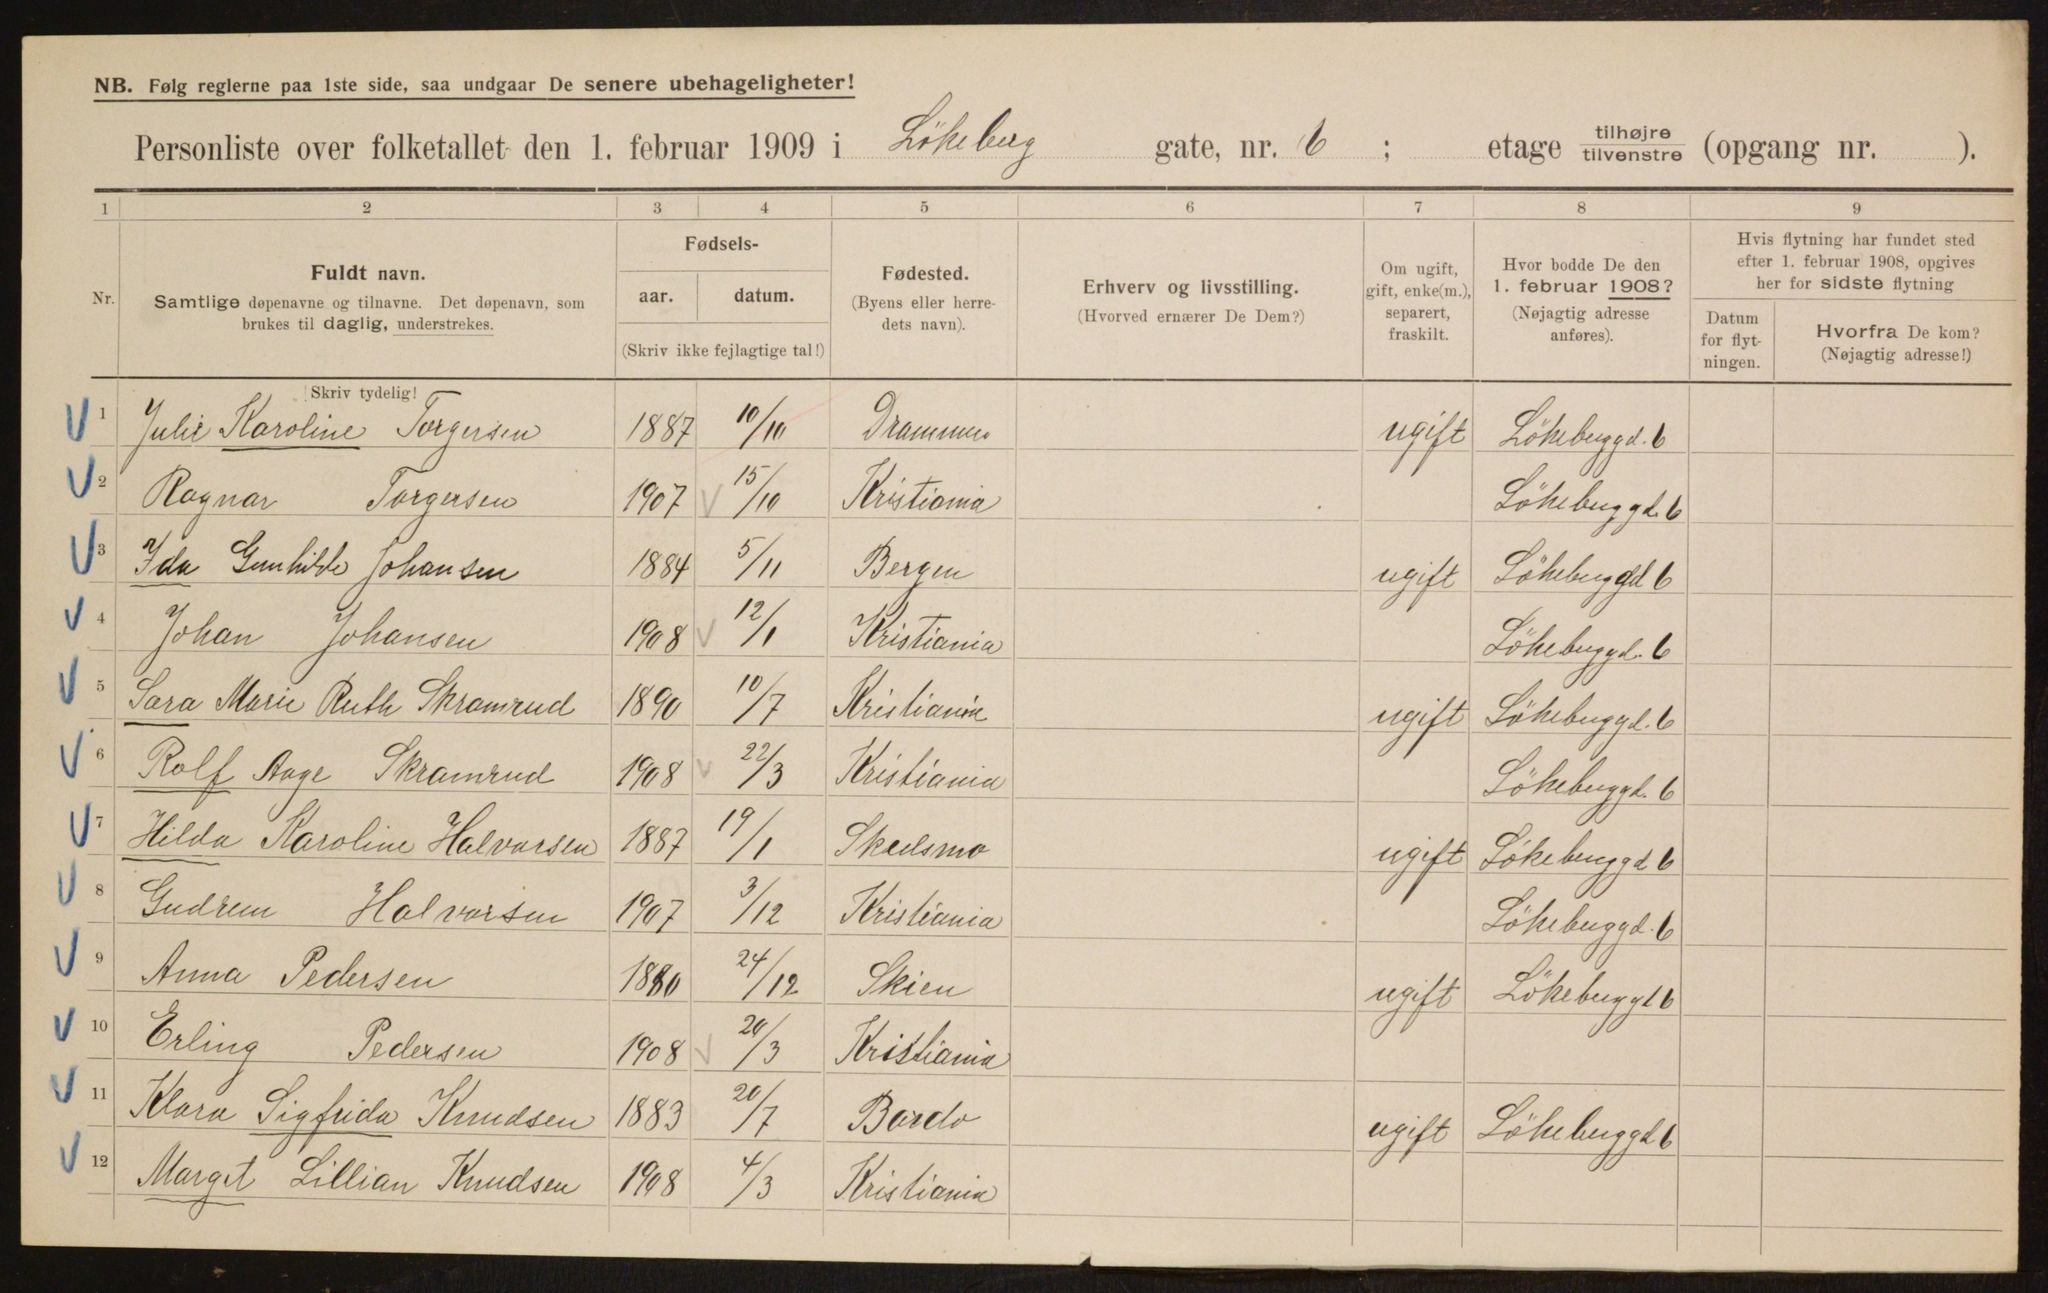 NB. Følg reglerne paa 1ste side, saa undgaar De senere ubehageligheter!
Personliste over folketallet den 1. februar 1909 i Lökeberg gate, nr. 6 ; etage tilhøjre/tilvenstre (opgang nr. ).
1 2 3 4 5 6 7 8 9
Nr.
Fuldt navn.
Samtlige døpenavne og tilnavne. Det døpenavn, som
brukes til daglig, understrekes.
Fødsels-
aar. datum.
(Skriv ikke fejlagtige tal!)
Fødested.
(Byens eller herre-
dets navn).
Erhverv og livsstilling.
(Hvorved ernærer De Dem?)
Om ugift,
gift, enke(m.),
separert,
fraskilt.
Hvor bodde De den
1. februar 1908?
(Nøjagtig adresse
anføres).
Hvis flytning har fundet sted
efter 1. februar 1908, opgives
her for sidste flytning
Datum
for flyt-
ningen.
Hvorfra De kom?
(Nøjagtig adresse!)
Skriv tydelig!
V 1 Julie Karoline Torgersen 1887 10/10 Drammen ugift Lökebuggd. 6
V 2 Ragnar Torgersen 1907 V 15/10 Kristiania Lökebuggd. 6
V 3 Ida Gunhilde Johansen 1884 5/11 Bergen ugift Lökebuggd 6
V 4 Johan Johansen 1908 V 12/1 Kristiania Lökebuggd. 6
V 5 Sara Marie Ruth Skramrud 1890 10/7 Kristiania ugift Lökebuggd. 6
V 6 Rolf Aage Skramrud 1908 V 22/3 Kristiania Lökebuggd. 6
V 7 Hilda Karoline Halvorsen 1887 19/1 Skedsmo ugift Lökebuggd 6
V 8 Gudrun Halvorsen 1907 3/12 Kristiania Lökebuggd. 6
V 9 Anna Pedersen 1880 24/12 Skien ugift Lökebuggd 6
V 10 Erling Pedersen 1908 V 20/3 Kristiania
V 11 Klara Sigfrida Knudsen 1883 20/7 Bardo ugift Lökebuggd 6
V 12 Margit Lillian Knudsen 1908 4/3 Kristiania